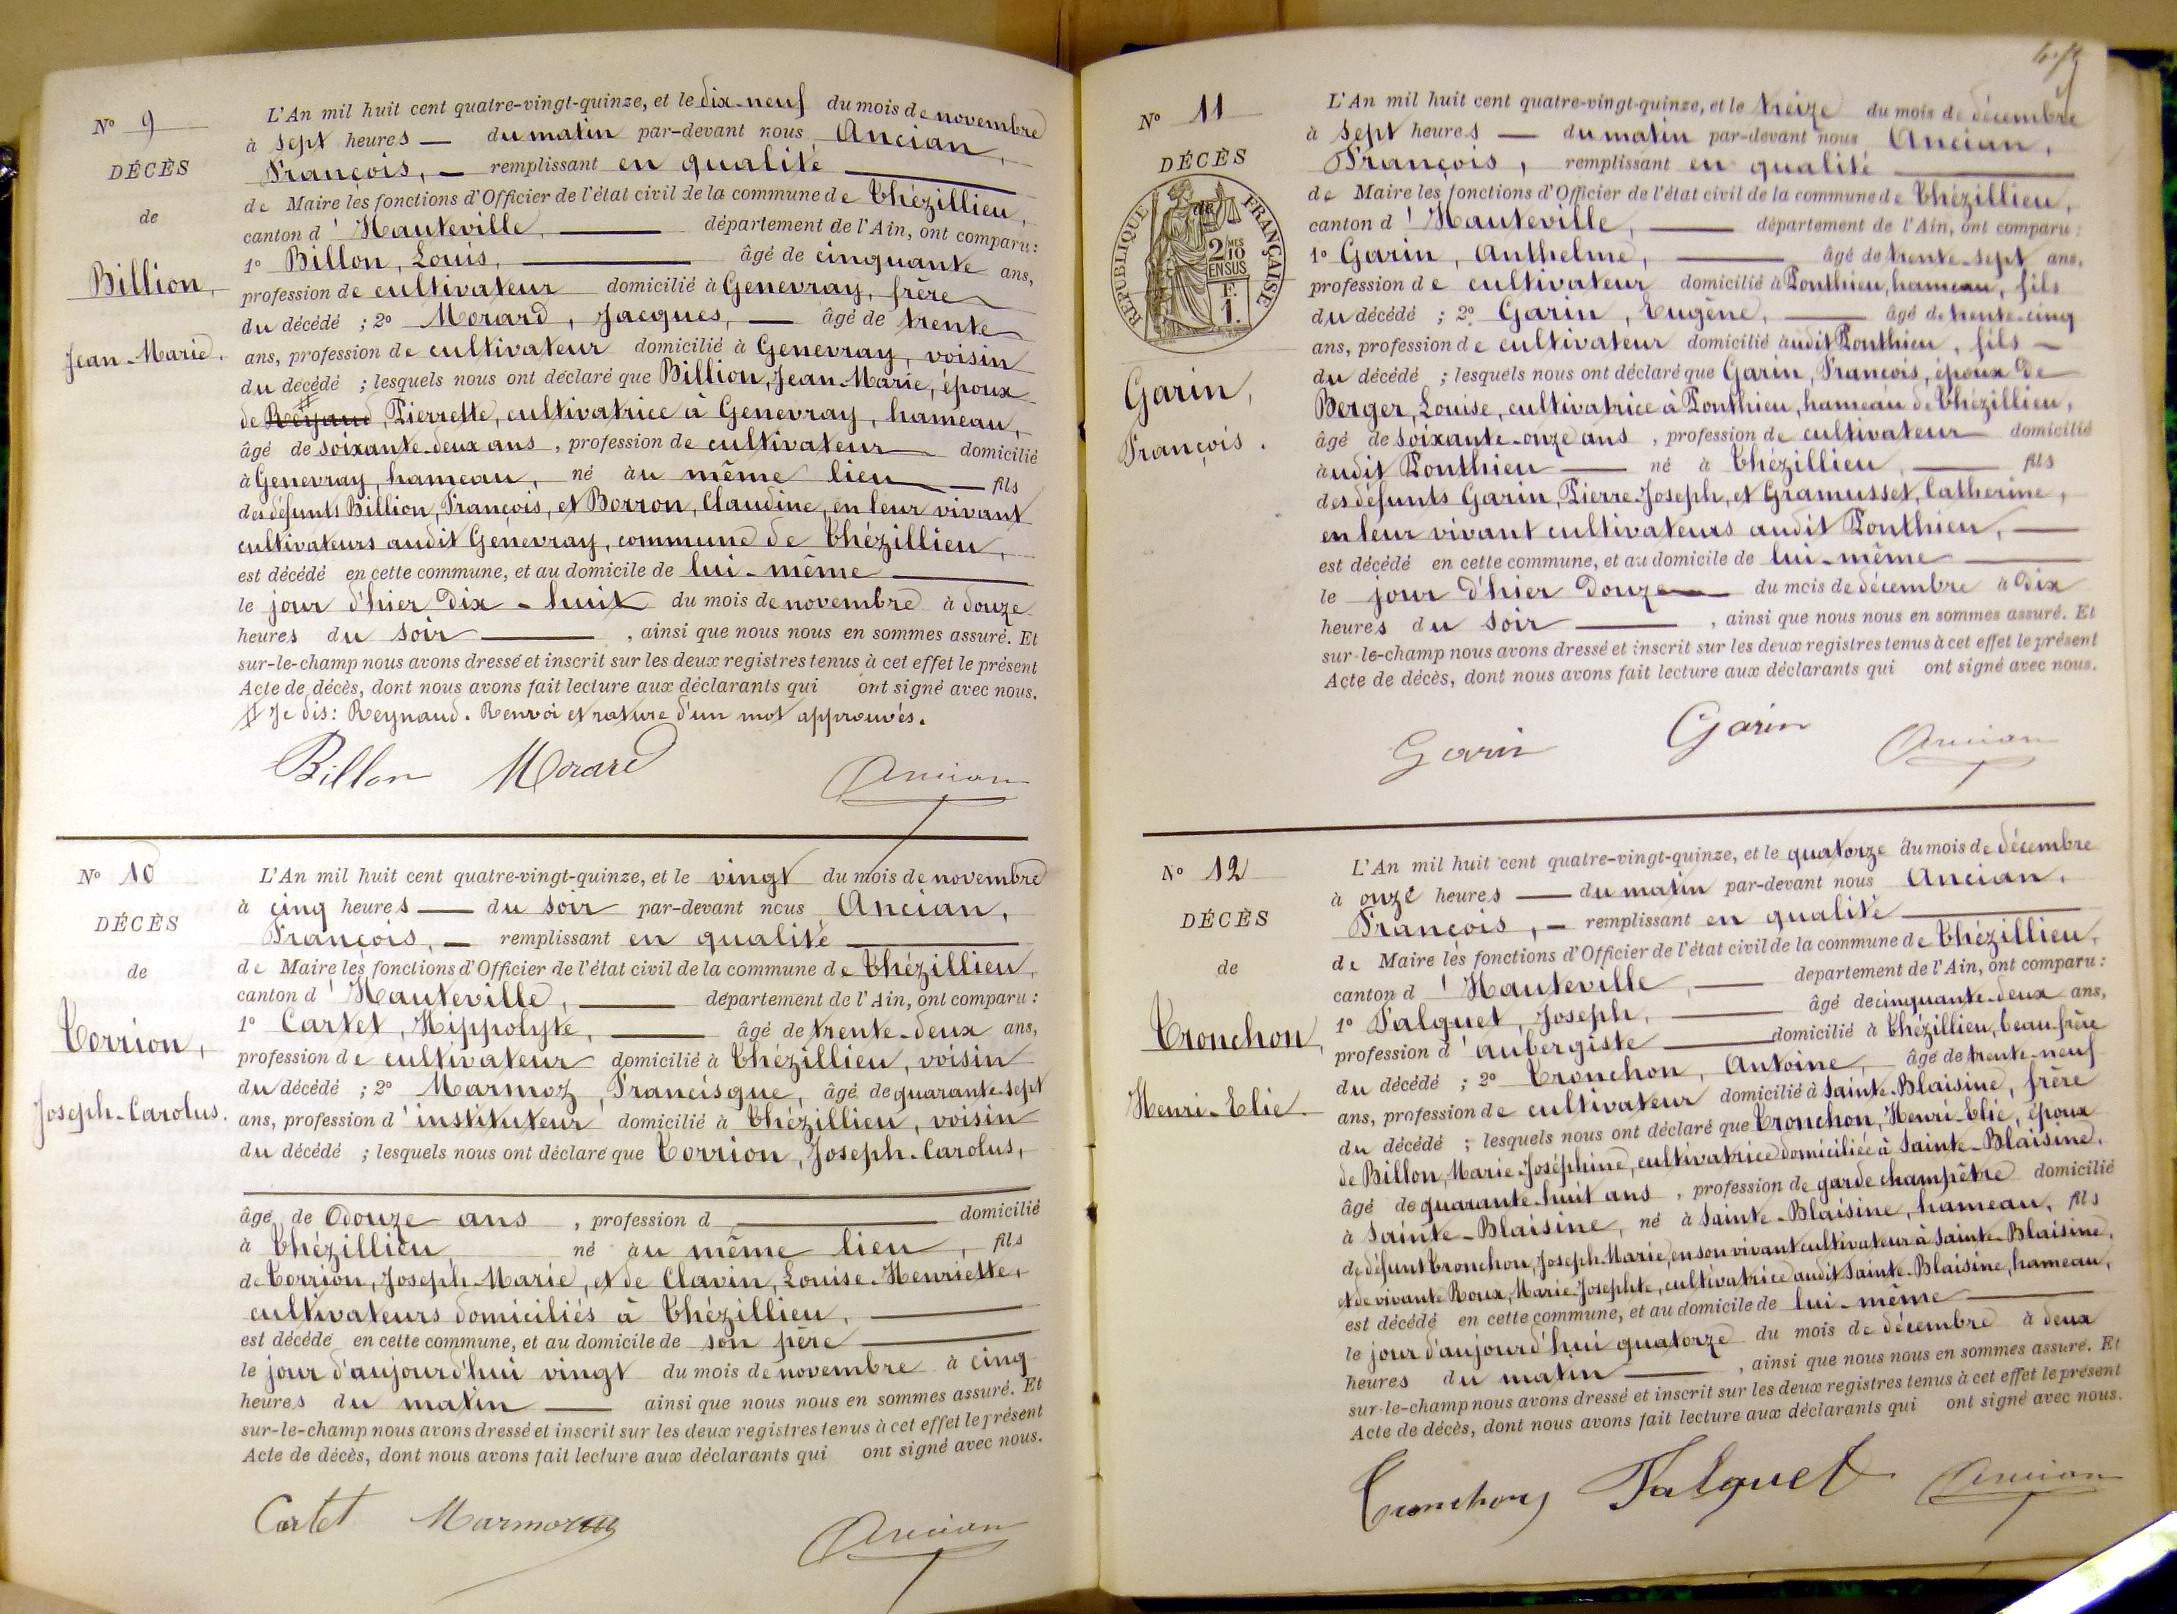 N° 9
DÉCÈS
de
Billion,
Jean-Marie.
L'An mil huit cent quatre-vingt-quinze, et le dix-neuf du mois de novembre
à sept heures — du matin par-devant nous Ancian,
François, — remplissant en qualité
de Maire les fonctions d'Officier de l'état civil de la commune de Thézillieu,
canton d'Hauteville, — département de l'Ain, ont comparu :
1° Billon, Louis, — âgé de cinquante ans,
profession de cultivateur domicilié à Genevray, frère
du décédé ; 2° Morard, Jacques, — âgé de trente
ans, profession de cultivateur domicilié à Genevray, voisin
du décédé ; lesquels nous ont déclaré que Billion, Jean-Marie, époux
de Pierrette, cultivatrice à Genevray, hameau,
âgé de soixante-deux ans, profession de cultivateur domicilié
à Genevray, hameau, né au même lieu — fils
des défunts Billion, François, et Borron, Claudine, en leur vivant
cultivateurs audit Genevray, commune de Thézillieu,
est décédé en cette commune, et au domicile de lui-même —
le jour d'hier dix-huit du mois de novembre à douze
heures du soir —, ainsi que nous nous en sommes assuré. Et
sur-le-champ nous avons dressé et inscrit sur les deux registres tenus à cet effet le présent
Acte de décès, dont nous avons fait lecture aux déclarants qui ont signé avec nous.
# Je dis : Reynaud. Renvoi et rature d'un mot approuvés.
Billon Morard Ancian
N° 10
DÉCÈS
de
Torrion,
Joseph-Carolus.
L'An mil huit cent quatre-vingt-quinze, et le vingt du mois de novembre
à cinq heures — du soir par-devant nous Ancian,
François, — remplissant en qualité
de Maire les fonctions d'Officier de l'état civil de la commune de Thézillieu,
canton d'Hauteville, — département de l'Ain, ont comparu :
1° Cartet, Hippolyte, — âgé de trente-deux ans,
profession de cultivateur domicilié à Thézillieu, voisin
du décédé ; 2° Marmoz, Francisque, âgé de quarante-sept
ans, profession d'instituteur domicilié à Thézillieu, voisin
du décédé ; lesquels nous ont déclaré que Torrion, Joseph-Carolus,
âgé de douze ans, profession d — domicilié
à Thézillieu, né au même lieu, fils
de Torrion, Joseph-Marie, et de Clavin, Louise-Henriette,
cultivateurs domiciliés à Thézillieu, —
est décédé en cette commune, et au domicile de son père —
le jour d'aujourd'hui vingt du mois de novembre à cinq
heures du matin — ainsi que nous nous en sommes assuré. Et
sur-le-champ nous avons dressé et inscrit sur les deux registres tenus à cet effet le présent
Acte de décès, dont nous avons fait lecture aux déclarants qui ont signé avec nous.
Cartet Marmoz Ancian
N° 11
DÉCÈS
de
RÉPUBLIQUE FRANÇAISE
2/10 MES
EN SUS
F.
1.
Garin,
François.
L'An mil huit cent quatre-vingt-quinze, et le treize du mois de décembre
à sept heures — du matin par-devant nous Ancian,
François, remplissant en qualité —
de Maire les fonctions d'Officier de l'état civil de la commune de Thézillieu,
canton d'Hauteville, — département de l'Ain, ont comparu :
1° Garin, Anthelme, — âgé de trente-sept ans,
profession de cultivateur domicilié à Ponthieu, hameau, fils
du décédé ; 2° Garin, Eugène, — âgé de trente-cinq
ans, profession de cultivateur domicilié audit Ponthieu, fils —
du décédé ; lesquels nous ont déclaré que Garin, François, époux de
Berger, Louise, cultivatrice à Ponthieu, hameau de Thézillieu,
âgé de soixante-onze ans, profession de cultivateur domicilié
audit Ponthieu — né à Thézillieu, — fils
des défunts Garin, Pierre-Joseph, et Gramusset, Catherine,
en leur vivant cultivateurs audit Ponthieu, —
est décédé en cette commune, et au domicile de lui-même —
le jour d'hier douze — du mois de décembre à dix
heures du soir —, ainsi que nous nous en sommes assuré. Et
sur-le-champ nous avons dressé et inscrit sur les deux registres tenus à cet effet le présent
Acte de décès, dont nous avons fait lecture aux déclarants qui ont signé avec nous.
Garin Garin Ancian
N° 12
DÉCÈS
de
Tronchon,
Henri-Elie.
L'An mil huit cent quatre-vingt-quinze, et le quatorze du mois de décembre
à onze heures — du matin par-devant nous Ancian,
François, — remplissant en qualité —
de Maire les fonctions d'Officier de l'état civil de la commune de Thézillieu,
canton d'Hauteville, — département de l'Ain, ont comparu :
1° Falquet, Joseph, — âgé de cinquante-deux ans,
profession d'aubergiste — domicilié à Thézillieu, beau-frère
du décédé ; 2° Tronchon, Antoine, âgé de trente-neuf
ans, profession de cultivateur domicilié à Sainte-Blaisine, frère
du décédé ; lesquels nous ont déclaré que Tronchon, Henri-Elie, époux
de Billon, Marie-Joséphine, cultivatrice domiciliée à Sainte-Blaisine,
âgé de quarante-huit ans, profession de garde champêtre domicilié
à Sainte-Blaisine, né à Sainte-Blaisine, hameau, fils
de défunt Tronchon, Joseph-Marie, en son vivant cultivateur à Sainte-Blaisine,
et de vivante Roux, Marie-Josephte, cultivatrice audit Sainte-Blaisine, hameau,
est décédé en cette commune, et au domicile de lui-même —
le jour d'aujourd'hui quatorze du mois de décembre à deux
heures du matin —, ainsi que nous nous en sommes assuré. Et
sur-le-champ nous avons dressé et inscrit sur les deux registres tenus à cet effet le présent
Acte de décès, dont nous avons fait lecture aux déclarants qui ont signé avec nous.
Tronchon Falquet Ancian